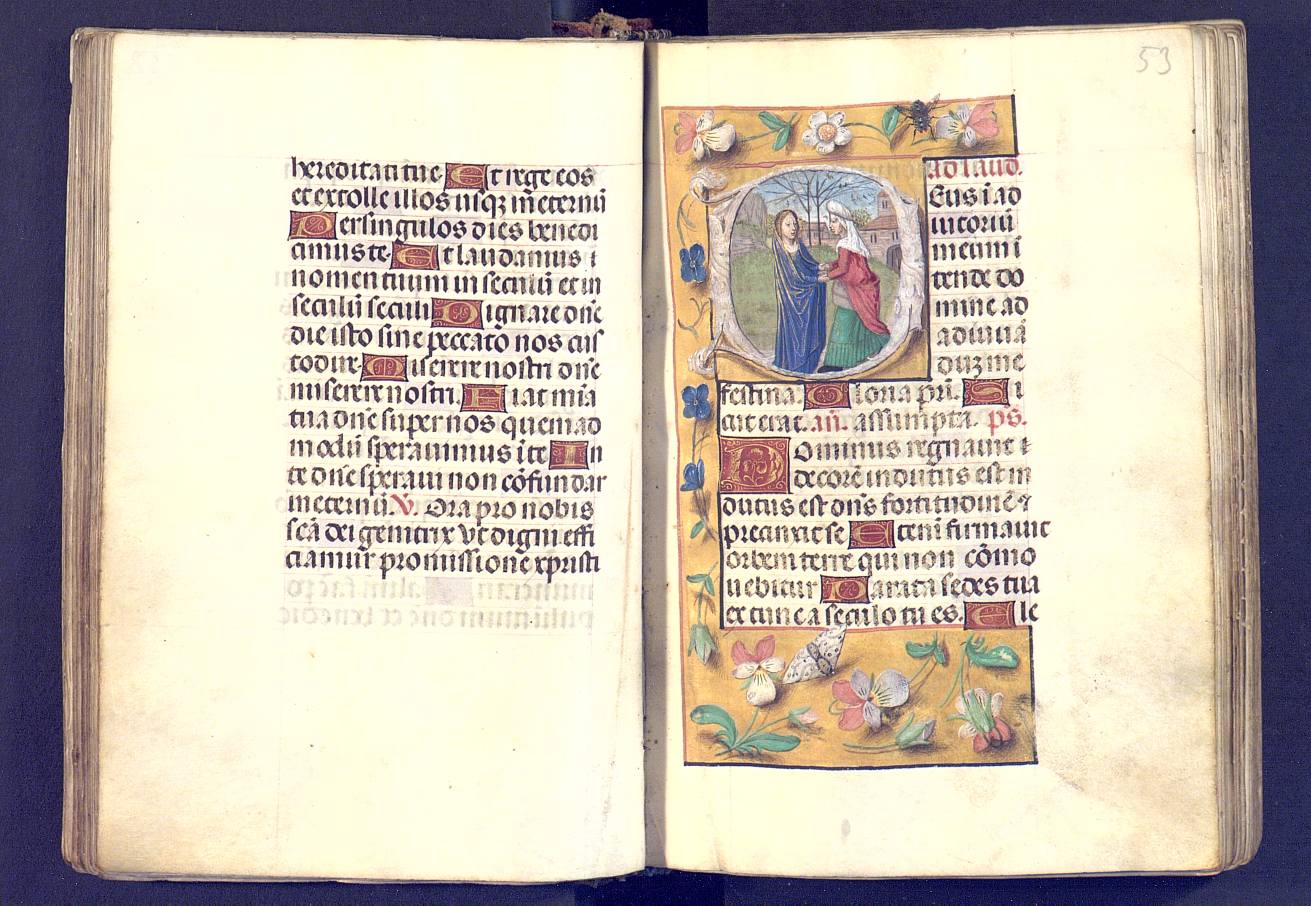 hereditati tue Et rege eos
et extolle illos usqꝫ in eternū
Per singulos dies benedi
cimus te. Et laudamus
nomen tuum in seculū et in
seculū seculi Dignare dn̄e
die isto sine peccato nos cus
todire. Miserere nostri dn̄e
miserere nostri. Fiat mīa
tua dn̄e super nos quemad
modū speravimus ī te In
te dn̄e speraui non cōfundar
in eternū. V. Ora pro nobis
scā dei genitrix Vt digni effi
ciamur promissione xpristi
53
ad laud.
Deus ī ad
iutoriū
meum ī
tende do
mine ad
adiuuā
dūꝫ me
festina. Gloria pr̄i. Si
cut erat. añ. assumpta. ps.
Dominus regnauit
decorē indutus est in
dutus est dn̄s fortitudinē ⁊
precinxit se Eteni firmauit
orbem terre qui non cōmo
uebitur Parata sedes tua
ex tunc a seculo tu es. Ele